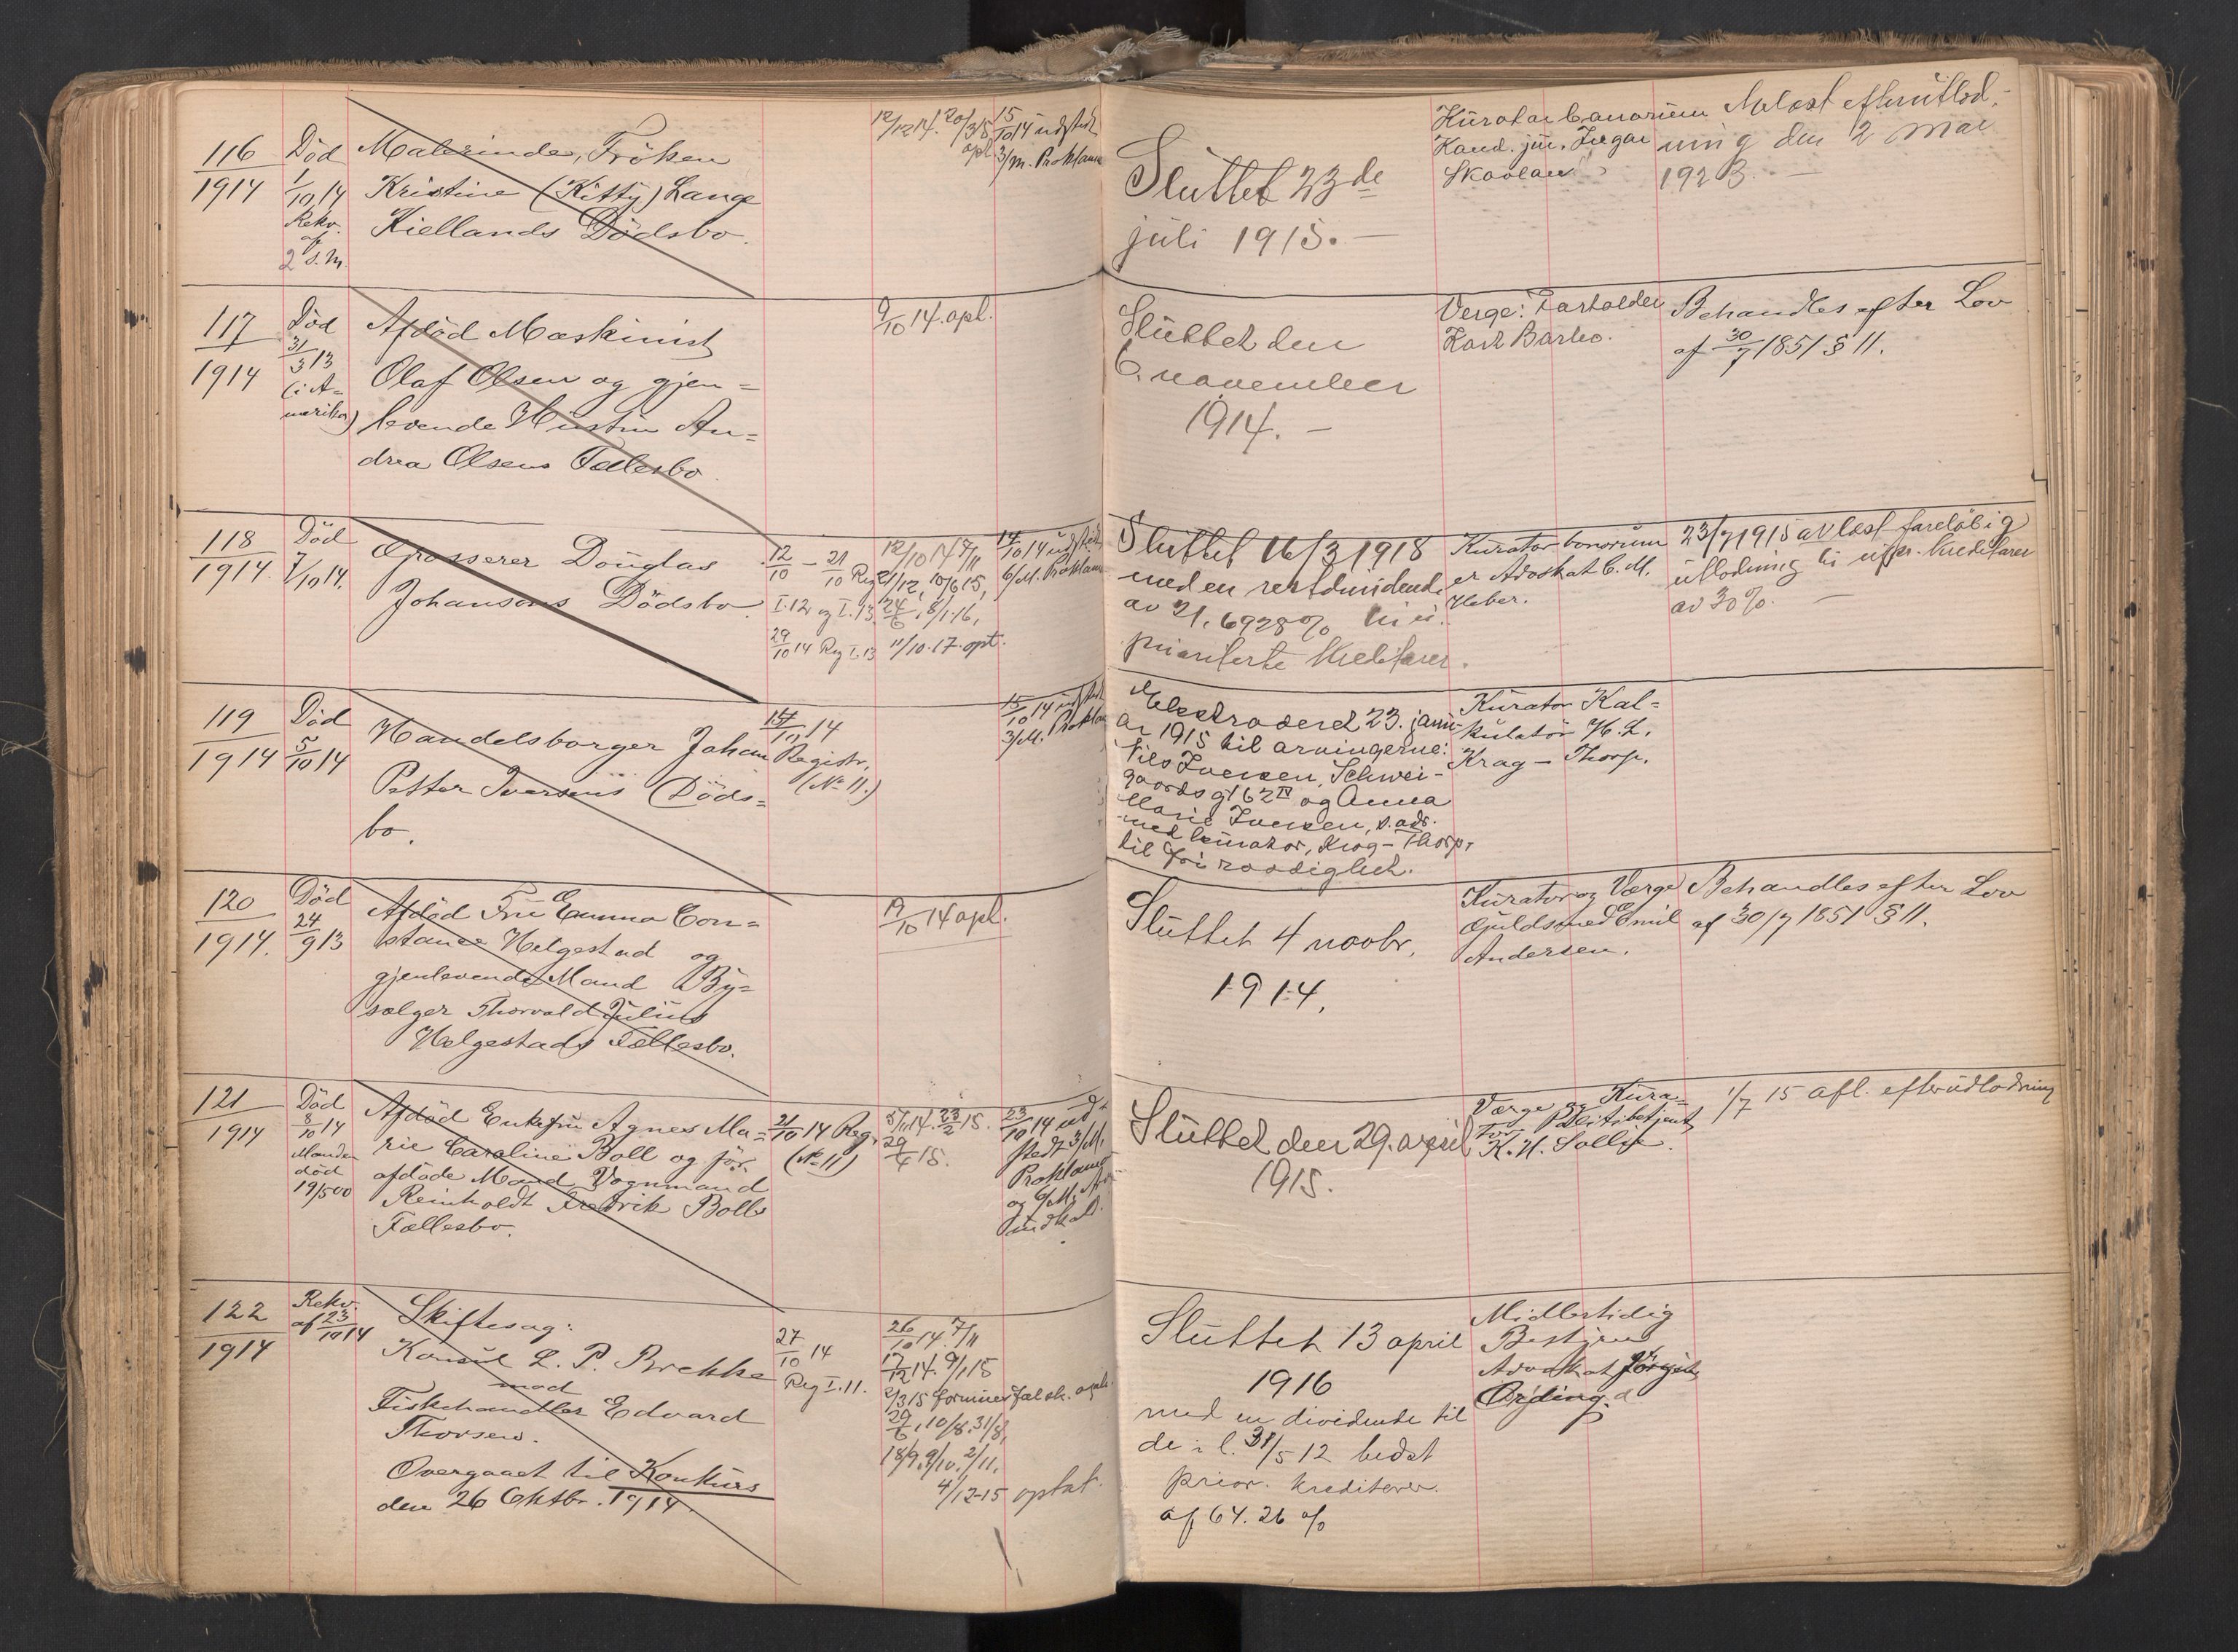 116
1914
Död
1/10 14
Rekv.
af
2 s.M.
Malerinde, Fröken
Kristine (Kitty) Lange
Kiellands Dödsbo.
12/12 14. 20/3 15
opl.
15/10 14 udstedt
3/M. Proklama
Sluttet 23de
juli 1915. —
Kurator bonorum
Kand. jur. Ingar
Skavlan
Avlæst efterutlod-
ning den 2 mai
1923. —
117
1914
Död
31/3 13
(i A-
merika)
Afdöd Maskinist
Olaf Olsen og gjen=
levende Hustru An=
drea Olsens Fællesbo.
9/10 14. opl.
Sluttet den
6. november
1914. —
Verge:
Karl Barbo.
Behandles efter Lov
af 30/7 1851 § 11.
118
1914.
Död
7/10 14.
Grosserer Douglas
Johansons Dödsbo
12/10 — 21/10 Reg
I. 12 og I. 13.
29/10 14 Reg I. 13
12/10 14 7/11
21/12, 10/6 15,
24/6, 8/1-16,
11/10-17. opt.
14/10 14 udstedt
6/M. Proklama
Sluttet 16/3 1918
med en restdividende
av 21,6928% til u.
prioriterte kreditorer.
Kurator bonorum
er Advokat C. M.
Heber.
23/7 1915 avlæst foreløbig
utlodning til upr. kreditorer
av 30%. —
119
1914
Död
5/10 14
Handelsborger Johan
Petter Iversens Döds=
bo.
15/10 14
Registr.
(No 11.)
15/10 14 udstedt
3/M. Proklama
Ekstraderet 23. janu-
ar 1915 til arvingerne:
Nils Iversen, Schwei-
gaards gt 62 IV og Anna
Marie Iversen, s. ads.
med kurator, Krag-Thorp,
til fri raadighet.
Kurator Kal=
kulatör H. L.
Krag — Thorp.
120
1914.
Död
24/9 13
Afdöd Fru Emma Con=
stance Helgestad og
gjenlevende Mand By=
sælger Thorvald Julius
Helgestads Fællesbo.
19/10 14 opl.
Sluttet 4 novbr.
1914.
Kurator og Værge
Guldsmed Emil
Andersen.
Behandles efter Lov
af 30/7 1851 § 11.
121
1914
Död
8/10 14
Manden
död
19/5 00
Afdöd Enkefru Agnes Ma=
rie Caroline Boll og för
afdöde Mand Vognmand
Reinholdt Fredrik Bolls
Fællesbo.
21/10 14 Reg.
(No 11)
5/11 14. 23/2 15.
29/4 15.
23/10 14 ud-
stedt 3/M.
Proklama
og 6/M.
indkald.
Sluttet den 29. april
1915.
Værge og Kura=
tor Politibetjent
K. H. Sollie.
1/7 15 afl. efterudlodning
122
1914
Rekv.
af 23/10 14
Skiftesag:
Konsul L. P. Brekke
mod
Fiskehandler Edvard
Thorsen.
Overgaaet til Konkurs
den 26 Oktbr. 1914.
27/10 14
Reg I. 11.
26/10 14. 7/11
17/12 14. 9/1 15
2/3 15
29/6, 10/8. 31/8,
18/9. 9/10. 2/11.
4/12-15 optat.
Sluttet 13 april
1916
med en dividende til
de i l. 31/5 12 bedst
prior. kreditorer
af 64.26 %
Midlertidig
Bestyrer
Advokat Jörgen
Ording.